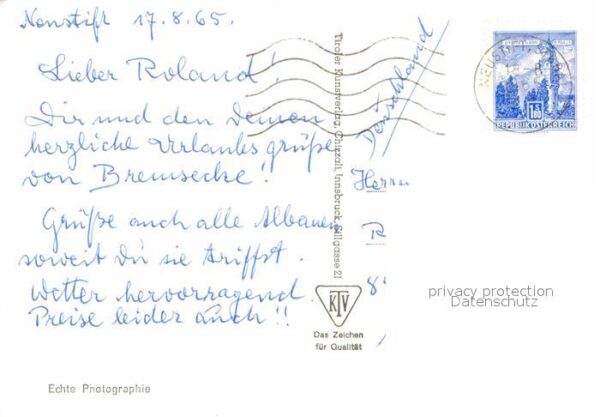 Neustift 17.8.65.
Lieber Roland!
Dir und den Deinen
herzliche Urlaubsgrüße
von Bremsecke!
Grüße auch alle Albanen
soweit du sie triffst.
Wetter hervorragend
Preise leider auch!!
Echte Photographie
Tiroler Kunstverlag Chizzali, Innsbruck, Sillgasse 21
KTV
Das Zeichen
für Qualität
Deutschland
Herrn
R
8
1.50
REPUBLIK ÖSTERREICH
privacy protection
Datenschutz